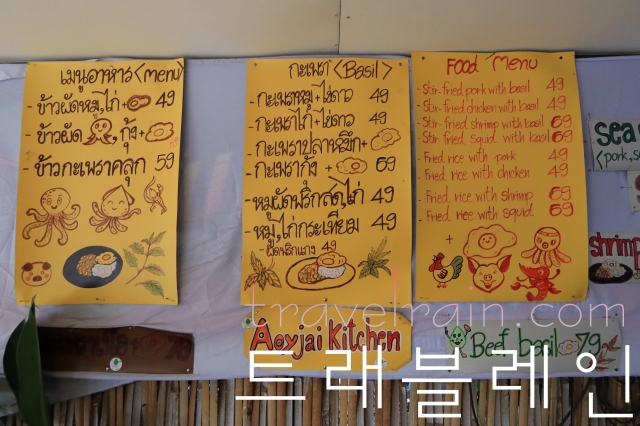 เมนูอาหาร <menu>
- ข้าวผัดหมู,ไก่ + 49
- ข้าวผัด กุ้ง +
- ข้าวกะเพราคลุก 59
กะเพรา <Basil>
- กะเพราหมู + ไข่ดาว 49
- กะเพราไก่ + ไข่ดาว 49
- กะเพราปลาหมึก +
- กะเพรากุ้ง + 69
- หมูผัดพริกสด,ไก่ 49
- หมู,ไก่กระเทียม 49
- ผัดพริกแกง 49
Food Menu
- Stir-fried pork with basil 49
- Stir-fried chicken with basil 49
- Stir-fried shrimp with basil 69
- Stir-fried squid with basil 69
- Fried rice with pork 49
- Fried rice with chicken 49
- Fried rice with shrimp 69
- Fried rice with squid 69
+
sea
<pork,s
shrimp
Aoyjai Kitchen
Beef basil 79
travelrain.com
트래블레인